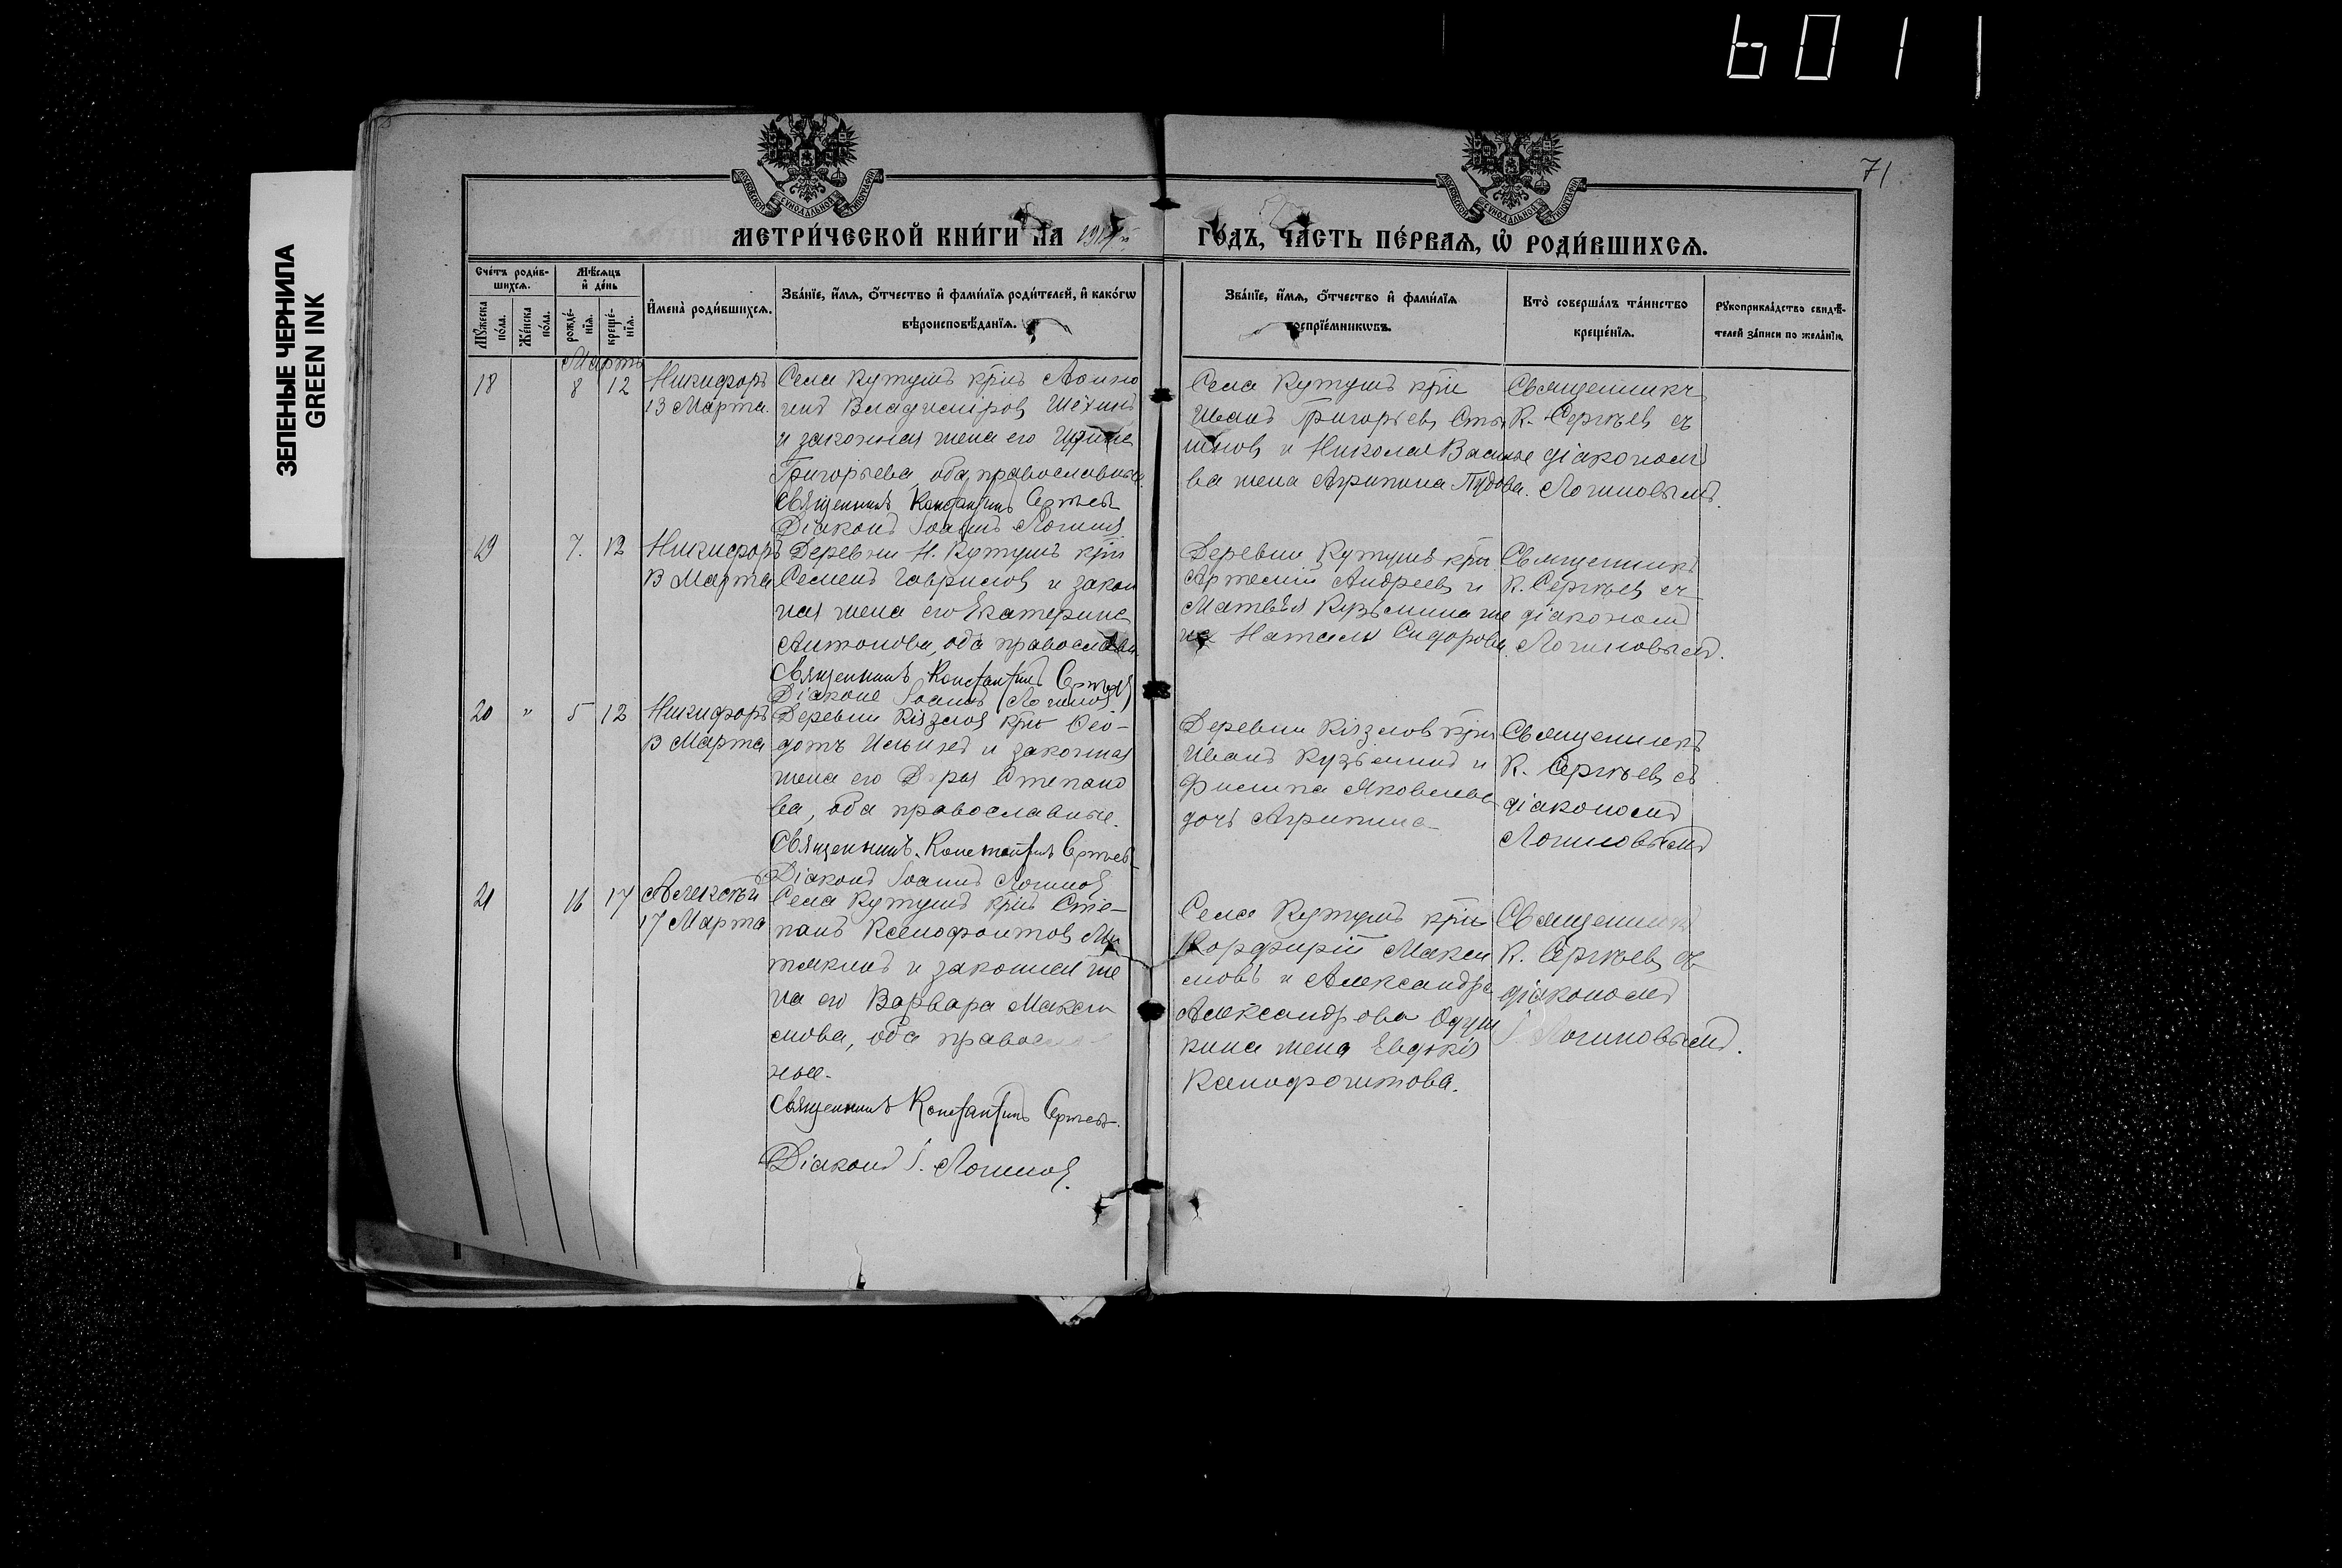 6011
ЗЕЛЕНЫЕ ЧЕРНИЛА
GREEN INK
71
МЕТРИ́ЧЕСКОЙ КНИ́ГИ НА
ГО́ДЪ, ЧА́СТЬ ПЕ́РВАѦ, Ѿ РОДИ́ВШИХСѦ.
Сче́тъ роди́в-
шихсѧ.
Мѣ́сѧцъ
и҆ де́нь
Мꙋ́жеска
по́ла.
Же́нска
по́ла.
рожде́-
нїѧ.
креще́-
нїѧ.
И҆мена̀ роди́вшихсѧ.
Зва́нїе, и҆́мѧ, ѻ҆́тчество и҆ фами́лїѧ роди́телей, и҆ како́гѡ
вѣроисповѣ́данїѧ.
Зва́нїе, и҆́мѧ, ѻ҆́тчество и҆ фами́лїѧ
воспрїе́мникѡвъ.
Кто̀ соверша́лъ та́инство
креще́нїѧ.
Рꙋкоприкла́дство свидѣ́-
телей за́писи по жела́нїю.
Мартъ
18 8 12
Никифоръ
13 Марта.
Села Кутушъ крнъ Логи
гинъ Владиміров Шехинъ
и законная жена его
Григорьева, оба православные.
Священникъ Константинъ Сергѣев
Діаконъ Іоаннъ Логинов
Села Кутушъ крн
Иванъ Григорьев
и Никола Василье
ва жена Агрипина
Священникъ
К. Сергѣев съ
діакономъ
Логиновымъ.
19 7. 12
Никифоръ
13 Марта
Деревни Н. Кутушъ крн
Семенъ Гаврилов и закон
ная жена его Екатерина
Антонова, оба православн
Священникъ Константинъ Сергѣев
Діаконъ Іоаннъ Логинов
Деревни Кутушъ крн
Артемій Андреев и
Матвѣя Кузьмина же
на Наталья Сидорова.
Священникъ
К. Сергѣев съ
діакономъ
Логиновымъ.
20 " 5 12
Никифоръ
13 Марта
Деревни крн Ѳео-
дотъ Ильинъ и законная
жена его Дарья Степано
ва, оба православные.
Священникъ Константинъ Сергѣев
Діаконъ Іоаннъ Логинов
Деревни крн
Иванъ Кузьминъ и
Филипа Яковлева
дочь Агрипина
Священникъ
К. Сергѣев съ
діакономъ
Логиновымъ
21 16 17
Алексѣй
17 Марта
Села Кутушъ крнъ Сте-
панъ Ксенофонтов Ми
тякинъ и законная же
на его Варвара Макси
мова, оба правосла-
ные.
Священникъ Константинъ Сергѣев.
Діаконъ І. Логинов.
Села Кутушъ крн
Порфирій Макси
мовъ и Александра
Александрова
жена Евдокія
Ксенофонтова.
Священникъ
К. Сергѣев съ
діакономъ
І. Логиновымъ.